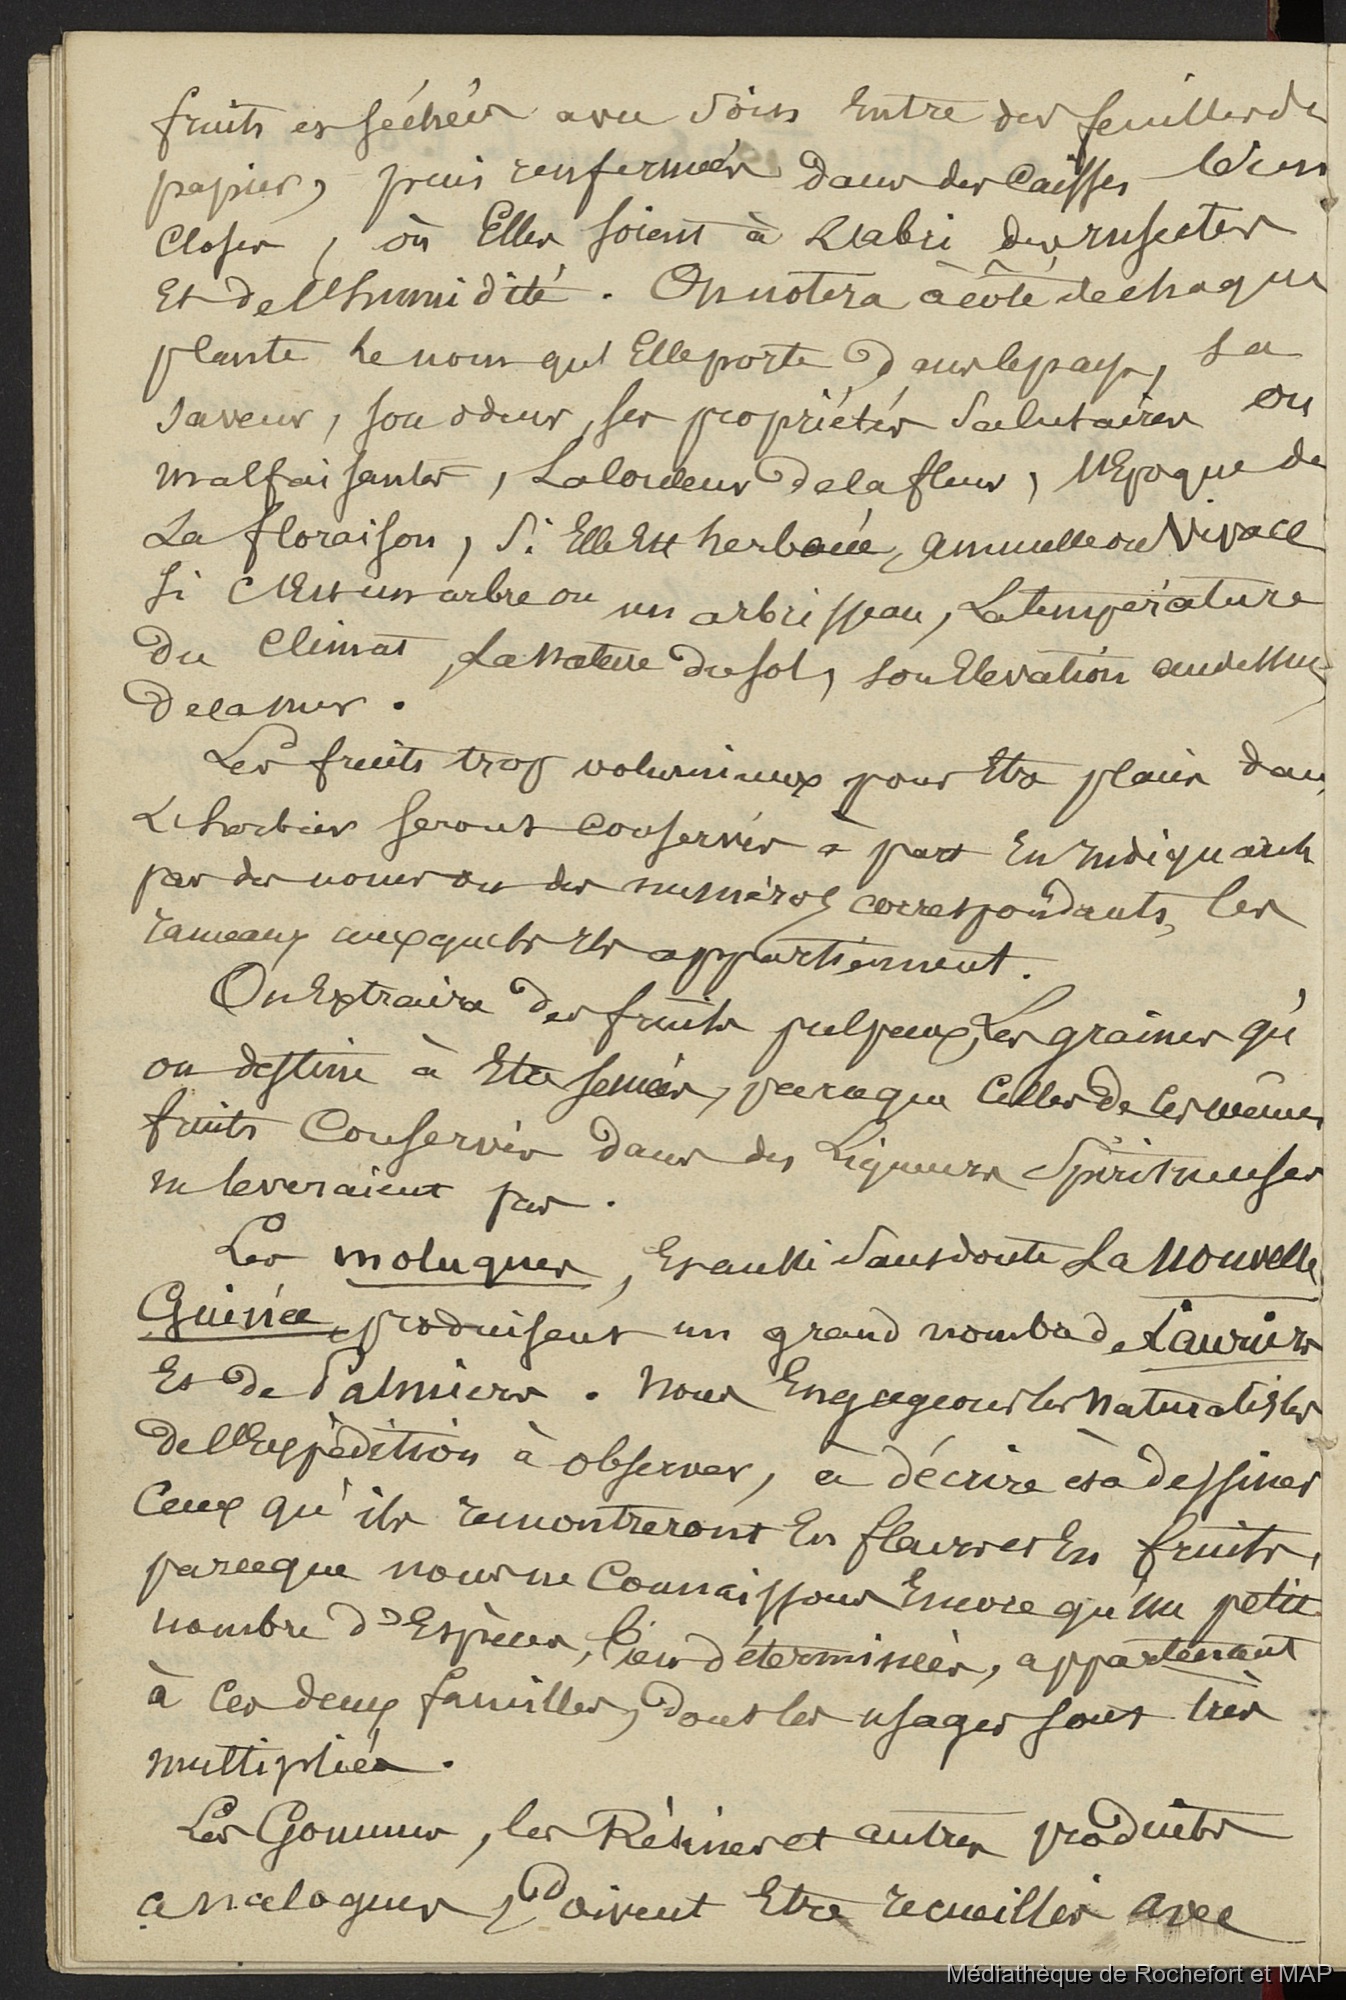 fruits et séchées avec soin entre des feuilles de
papier, puis renfermées dans des Caisses bien
Closes, où Elles soient à L'abri des insectes
Et de l'humidité. On notera à côté de chaque
plante le nom qu'Elle porte dans le pays, sa
saveur, son odeur, ses propriétés salutaires ou
malfaisantes, La Couleur de la fleur, l'Epoque de
La floraison, si Elle Est herbacée, annuelle ou Vivace
si c'Est un arbre ou un arbrisseau, La température
du Climat, La Nature du sol, son Elevation au dessus
de la mer.
Les fruits trop volumineux pour Etre placés dans
L'herbier seront Conservés à part En Indiquant
par des noms ou des numéros correspondants, les
rameaux auxquels ils appartiennent.
On Extraira des fruits pulpeux, Les graines qu'
on destine à Etre semées, parceque Celles de Ces mêmes
fruits Conservés dans des Liqueurs Spiritueuses
ne leveraient pas.
Les moluques, Et aussi sans doute La Nouvelle
Guinée, produisent un grand nombre de Lauriers
Et de Palmiers. Nous Engageons les Naturalistes
de l'Expédition à observer, à décrire et à dessiner
Ceux qu'ils rencontreront En fleurs et En fruits,
parceque nous ne Connaissons Encore qu'un petit
nombre d'Espèces, bien déterminées, appartenant
à Ces deux familles, dont les usages sont très
multipliés.
Les Gommes, les Résines et autres produits
analogues, doivent Etre recueillis avec
Médiathèque de Rochefort et MAP